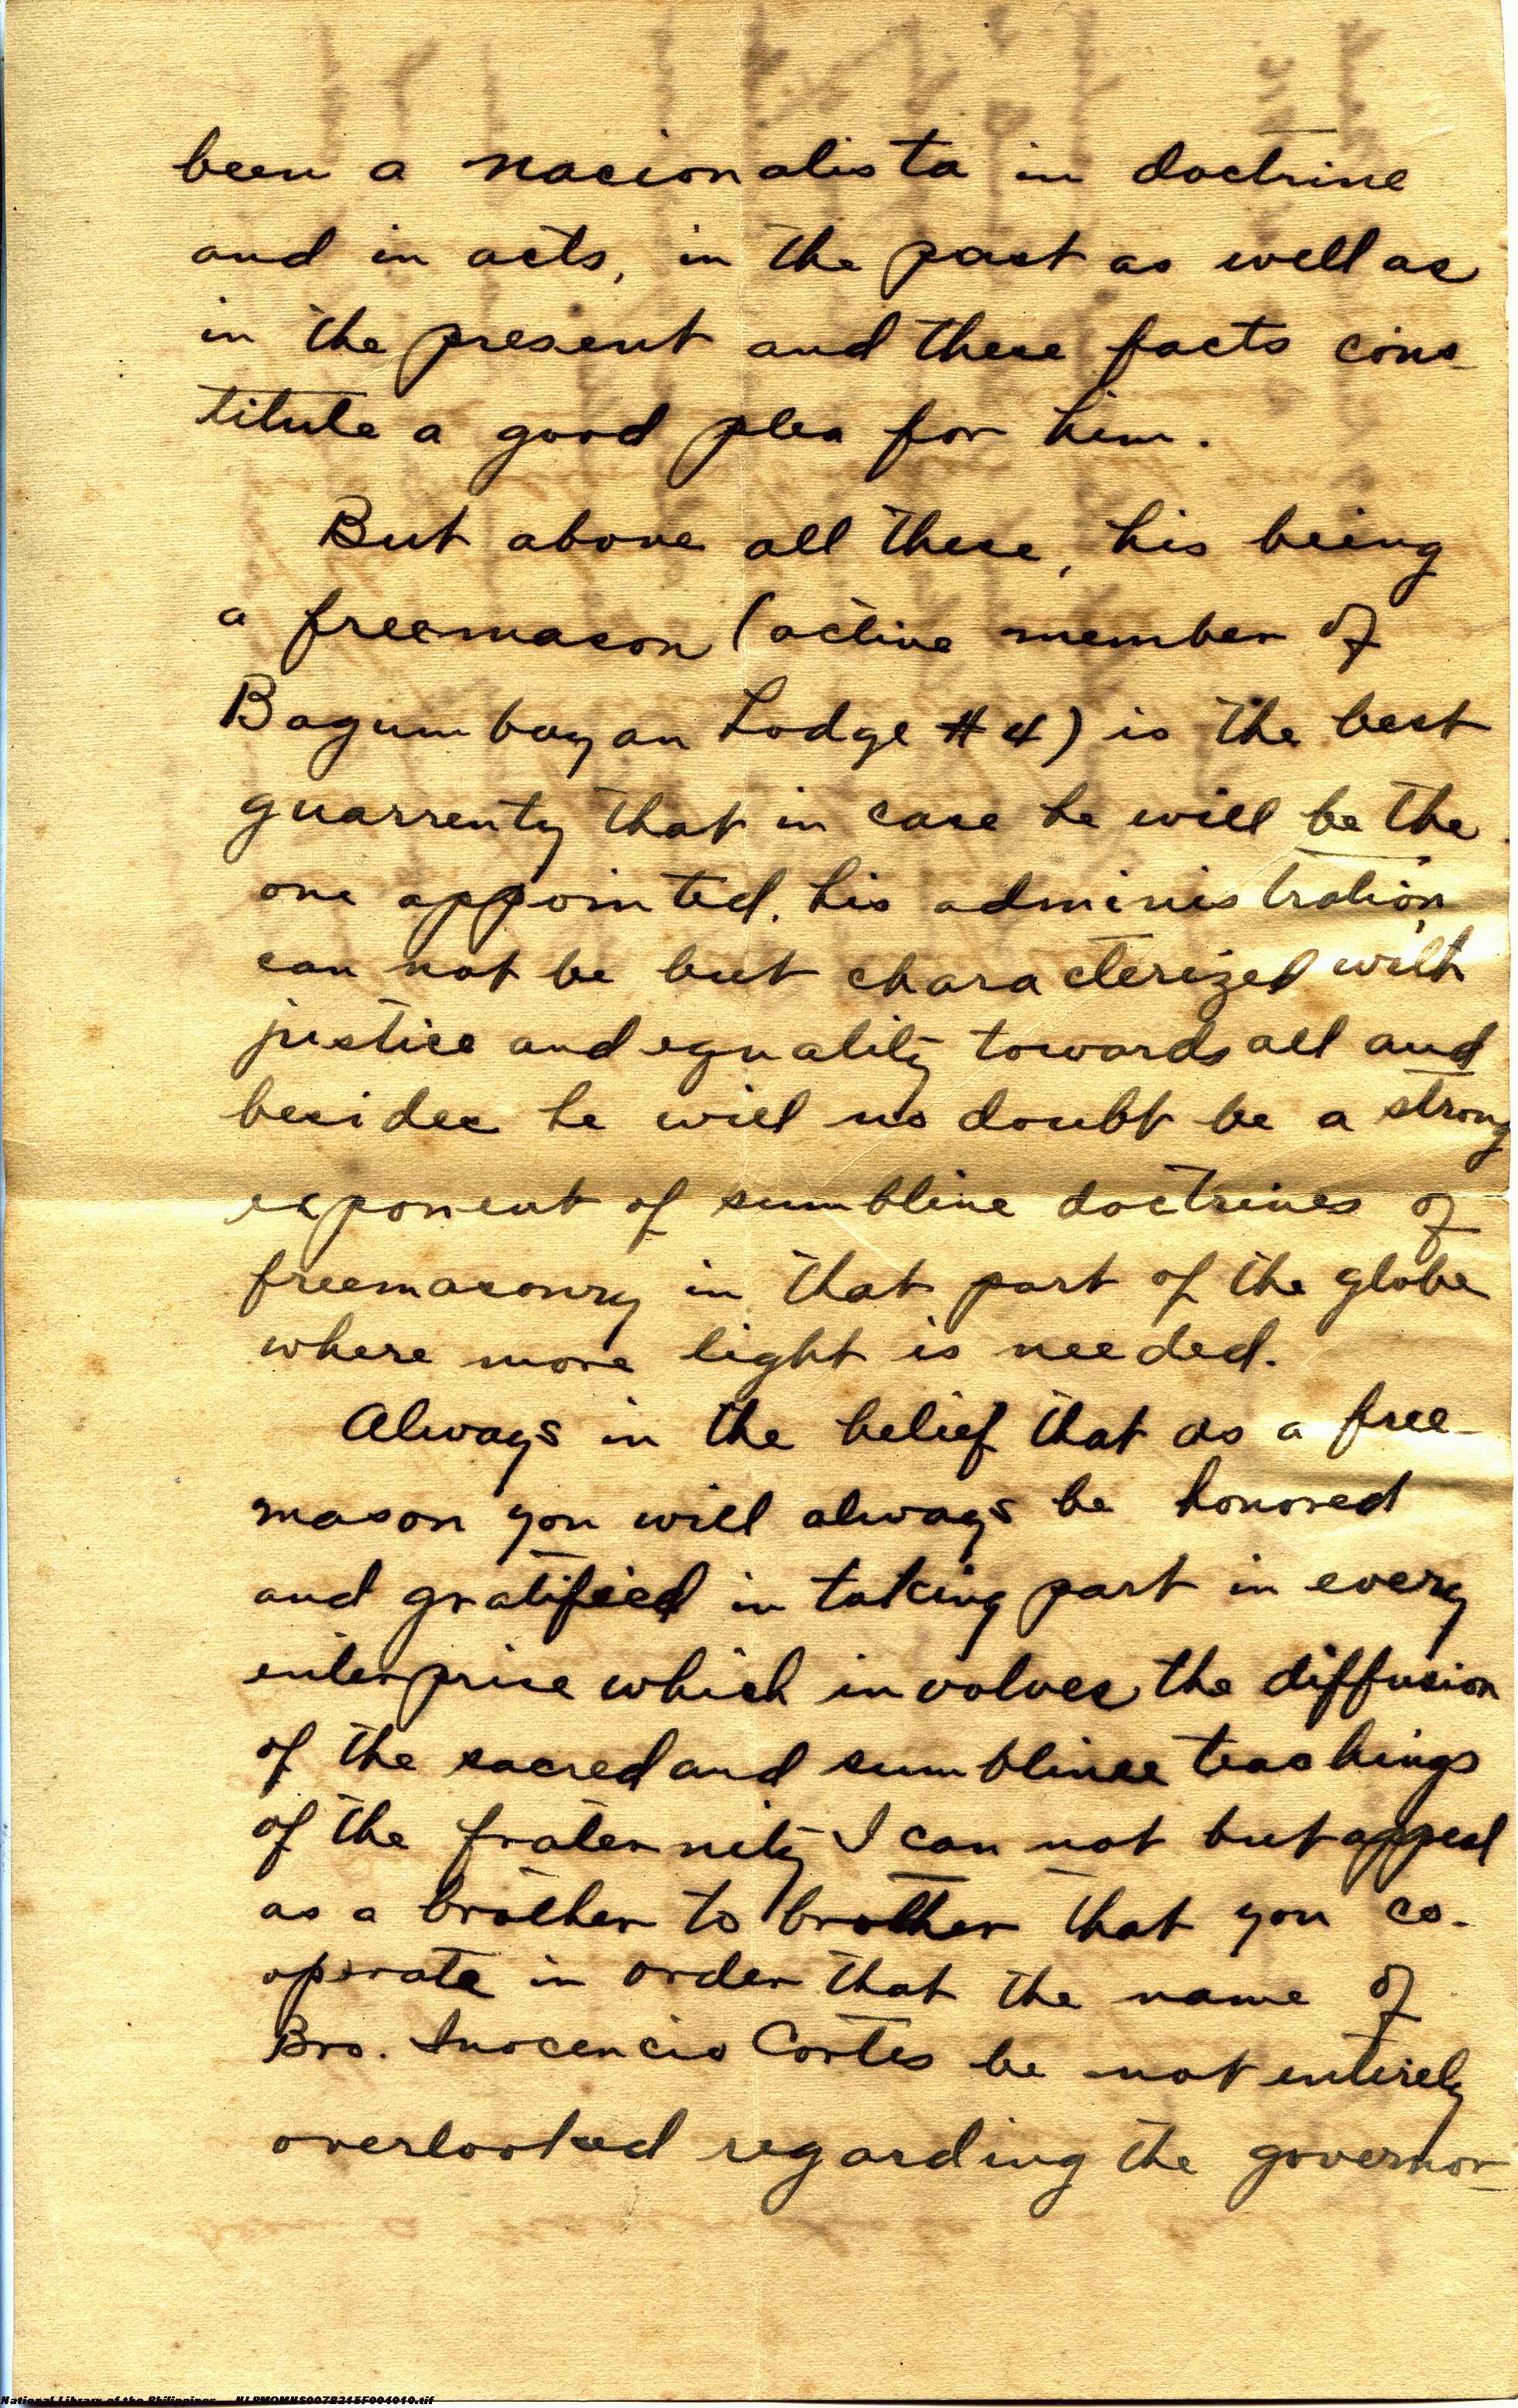 been a nacionalista in doctrine
and in acts, in the past as well as
in the present and these facts cons-
titute a good plea for him.
But above all these, his being
a freemason (active member of
Bagumbayan Lodge #4) is the best
guarrenty that in case he will be the
one appointed, his administration
can not be but characterized with
justice and equality towards all and
besides he will no doubt be a strong
exponent of sumbline doctrines of
freemasonry in that part of the globe
where more light is needed.
Always in the belief that as a free-
mason you will always be honored
and gratified in taking part in every
enterprise which involves the diffusion
of the sacred and sumblinee teachings
of the fraternity I can not but appeal
as a brother to brother that you co-
operate in order that the name of
Bro. Inocencio Cortes be not entirely
overlooked regarding the governor-
National Library of the Philippines